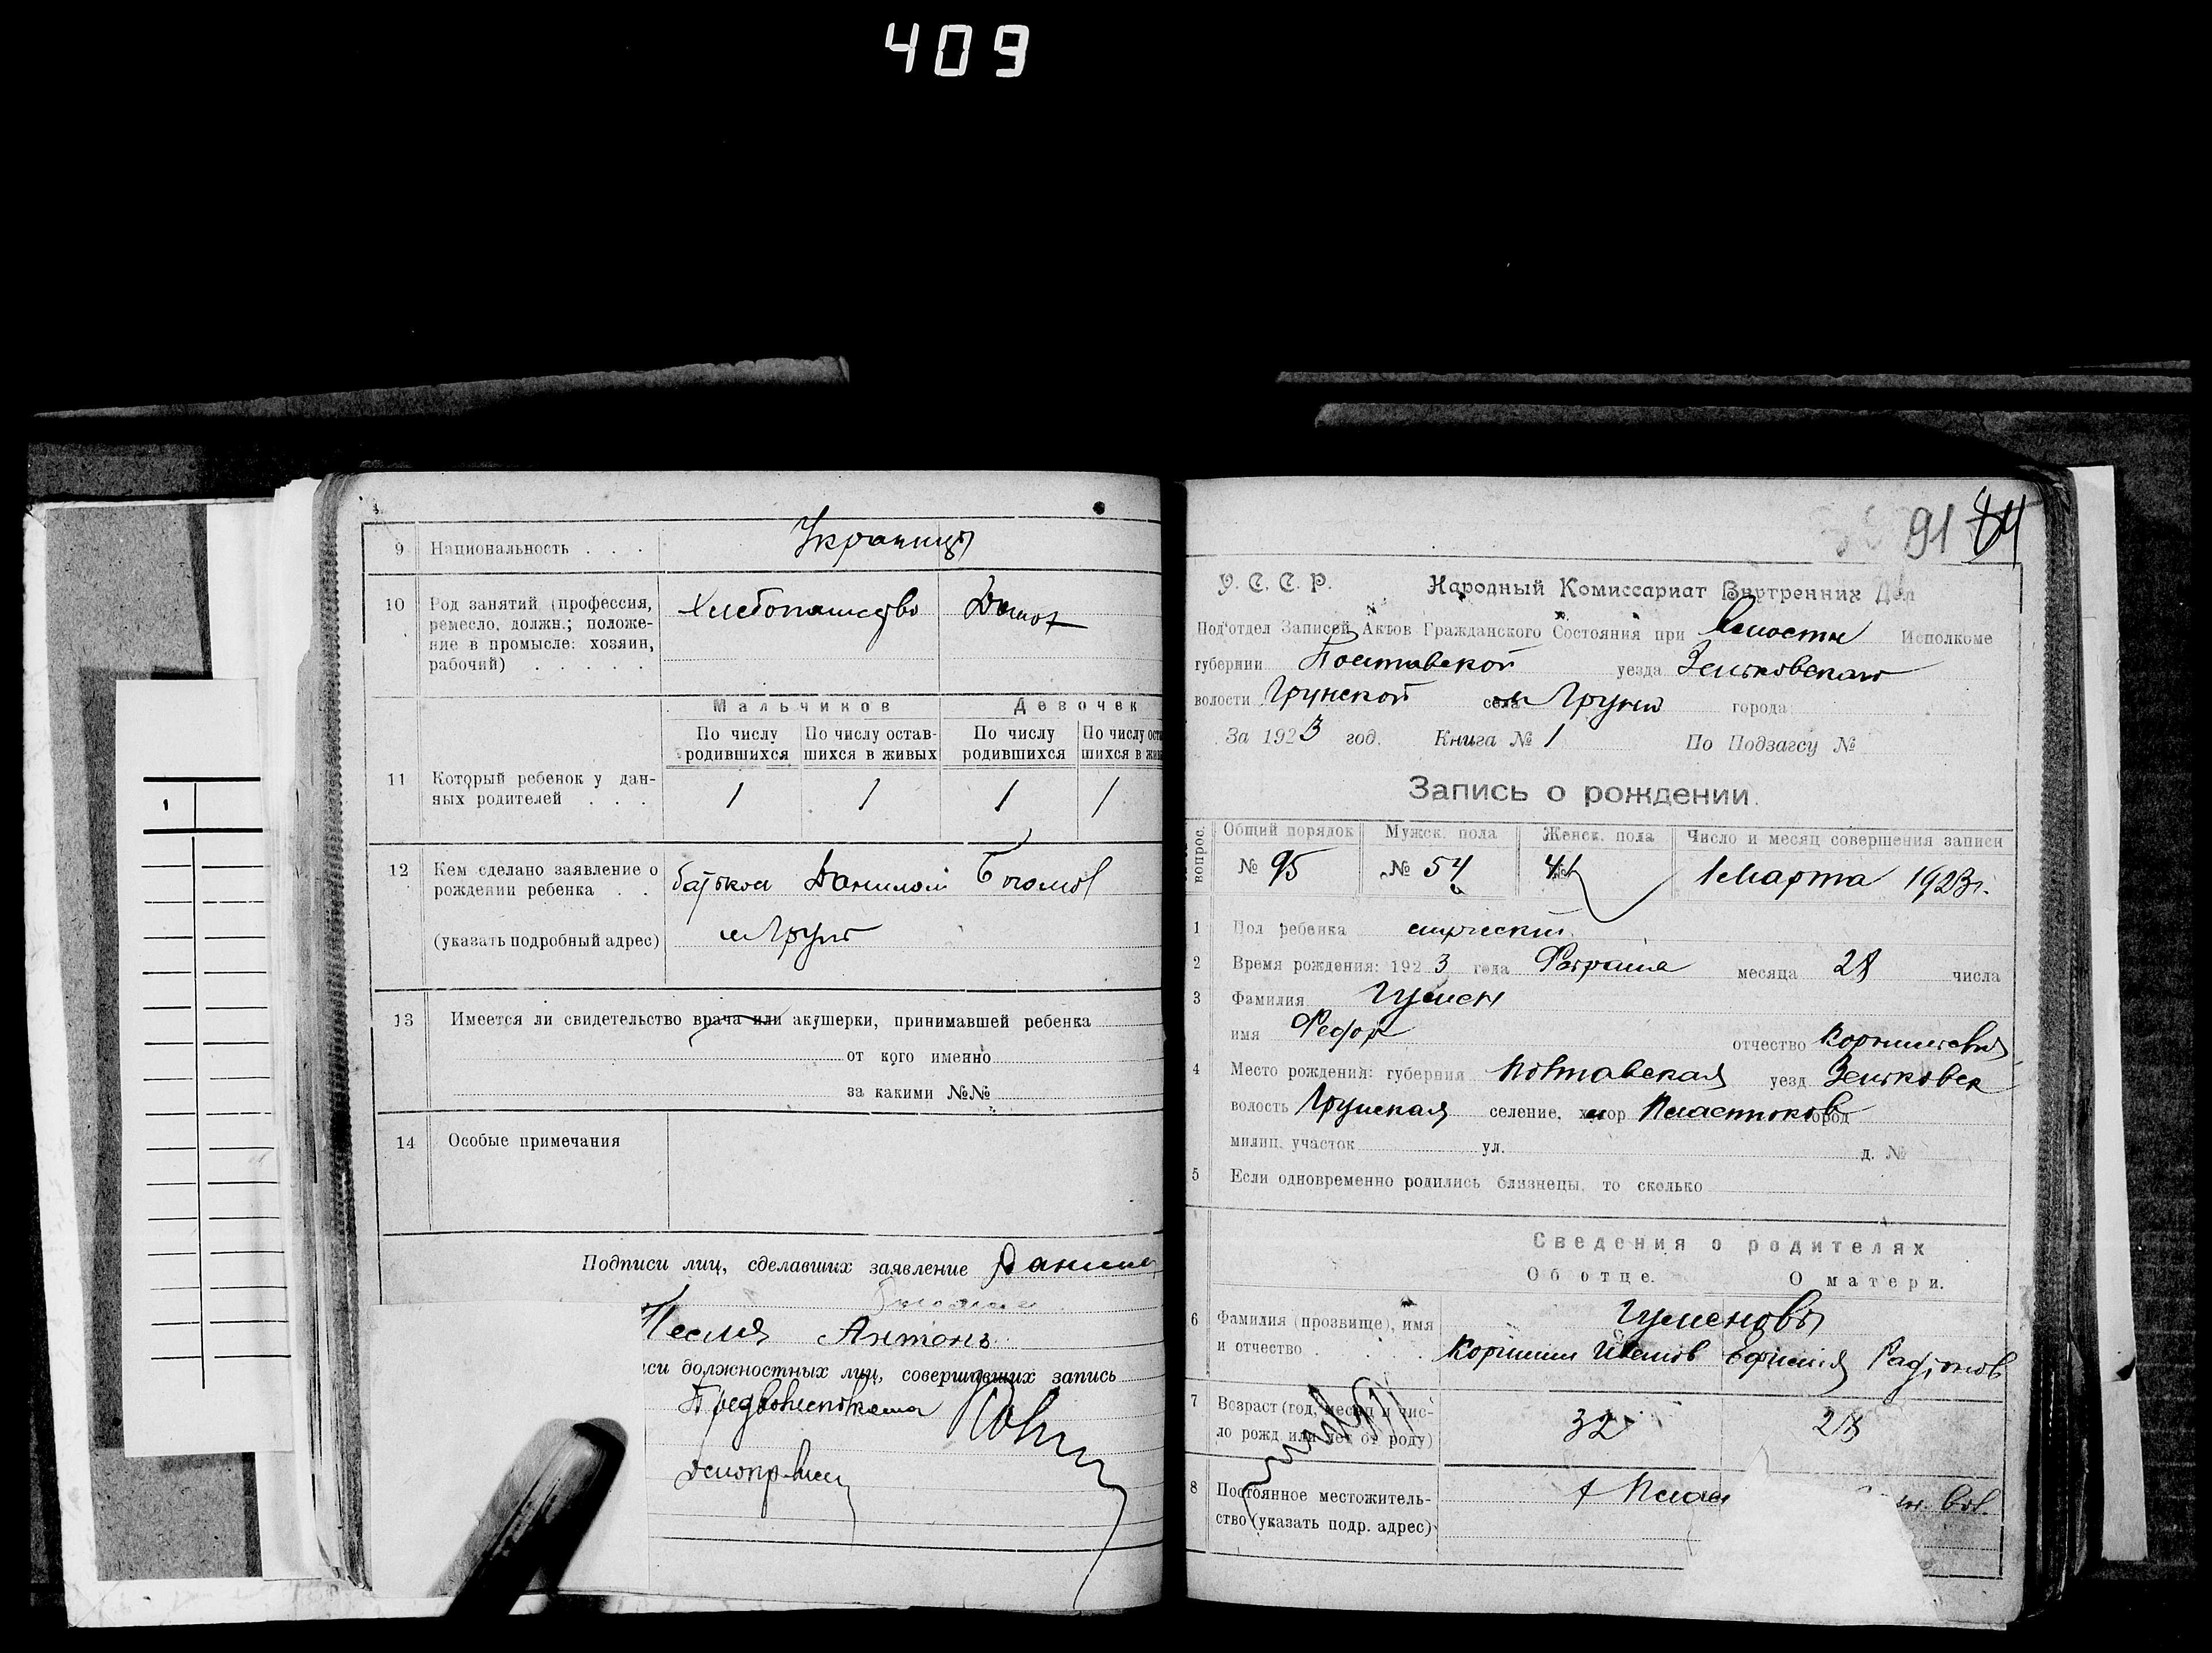 409
9 Национальность . . . Украинцы
10 Род занятий (профессия, ремесло, должн.; положе-
ние в промысле: хозяин,
рабочий) . . . . . Хлебопашество Домох
Мальчиков Девочек
По числу родившихся По числу остав-шихся в живых По числу родившихся По числу оста шихся в жив
11 Который ребенок у дан-
ных родителей . . . 1 1 1 1
12 Кем сделано заявление о
рождении ребенка . . батьком Данилом
(указать подробный адрес) м Грунь
13 Имеется ли свидетельство врача или акушерки, принимавшей ребенка
от кого именно
за какими №№
14 Особые примечания
Подписи лиц, сделавших заявление Данило
Антонъ
си должностных лиц, совершивших запись
91 84
У. С. С. Р. Народный Комиссариат Внутренних Дел
Под'отдел Записей Актов Гражданского Состояния при Волостн Исполкоме
губернии Полтавской уезда Зеньковскаго
волости Грунской села м Грунь города
За 1923 год. Книга № 1 По Подзагсу №
Запись о рождении.
вопрос. Общий порядок Мужск. пола Женск. пола Число и месяц совершения записи
№ 95 № 54 41 1 Марта 1923 г.
1 Пол ребенка мужеский
2 Время рождения: 1923 года Февраля месяца 28 числа
3 Фамилия Гумен
имя Федор отчество Корнилиевич
4 Место рождения: губерния Полтавская уезд Зеньковск
волость Грунская селение, хутор город
милиц. участок ул. д. №
5 Если одновременно родились близнецы, то сколько
Сведения о родителях
Об отце. О матери.
6 Фамилия (прозвище), имя Гуменовы
и отчество . . . . Корнилий Иванов Ефимия Родионов
7 Возраст (год, месяц и чис-
ло рожд или лет от роду) 32 28
8 Постоянное местожитель-
ство (указать подр. адрес) вол.